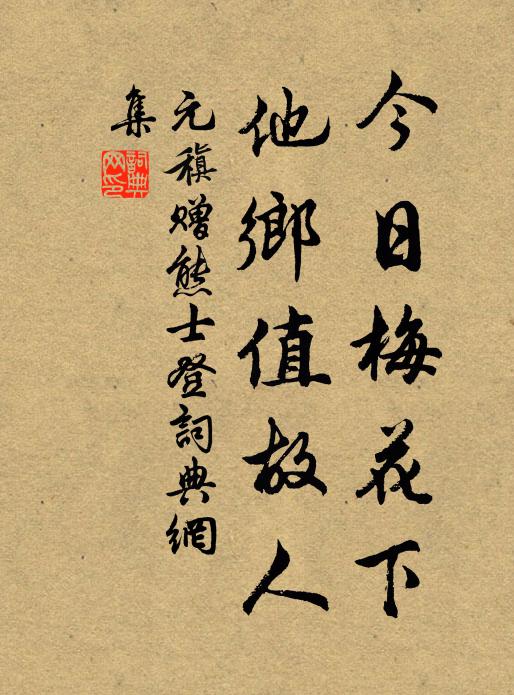 今日梅花下
他鄉值故人
元稹贈熊士登詞典網
集
詞典
网印